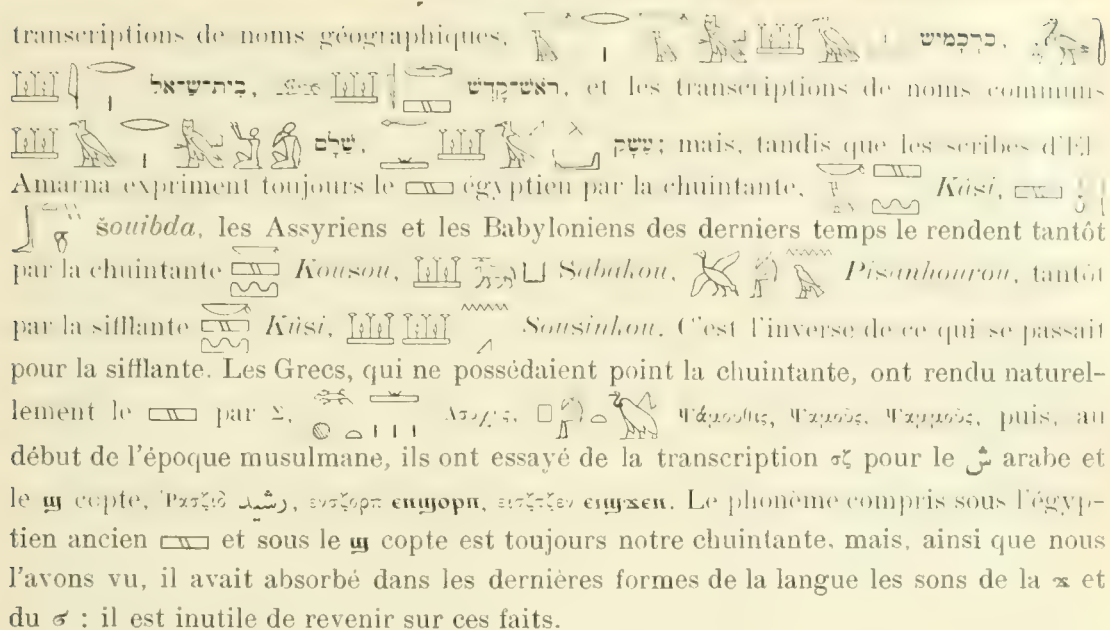 transcriptions de noms géographiques, כרכמיש,
בית־ש־אל, ראש־קדש, et les transcriptions de noms communs
שלם, עשק; mais, tandis que les scribes d'El
Amarna expriment toujours le égyptien par la chuintante, Kûsi,
šouibda, les Assyriens et les Babyloniens des derniers temps le rendent tantôt
par la chuintante Kousou, Sabakou, Pisanhourou, tantôt
par la sifflante Kûsi, Sousinkou. C'est l'inverse de ce qui se passait
pour la sifflante. Les Grecs, qui ne possédaient point la chuintante, ont rendu naturel-
lement le par Σ, Ψάμουθις, Ψαμοῦς, puis, au
début de l'époque musulmane, ils ont essayé de la transcription σζ pour le ش arabe et
le ϣ copte, Ρασζιδ رشيد, ενσζορπ ⲉⲛϣⲟⲣⲡ, ⲉⲛϣϫⲉⲛ. Le phonème compris sous l'égyp-
tien ancien et sous le ϣ copte est toujours notre chuintante, mais, ainsi que nous
l'avons vu, il avait absorbé dans les dernières formes de la langue les sons de la ϫ et
du ϭ : il est inutile de revenir sur ces faits.